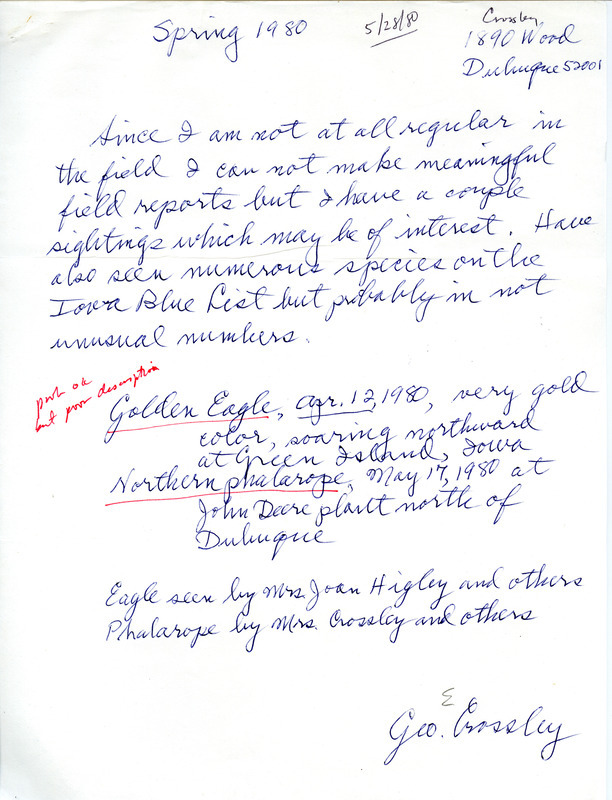 Spring 1980
5/28/80
Crossley
1890 Wood
Dubuque 52001
Since I am not at all regular in
the field I can not make meaningful
field reports but I have a couple
sightings which may be of interest. Have
also seen numerous species on the
Iowa Blue List but probably in not
unusual numbers.
prob ok
but poor description
Golden Eagle, Apr. 12, 1980, very gold
color, soaring northward
at Green Island, Iowa
Northern phalarope, May 17, 1980 at
John Deere plant north of
Dubuque
Eagle seen by Mrs. Joan Higley and others
Phalarope by Mrs. Crossley and others
E
Geo. Crossley